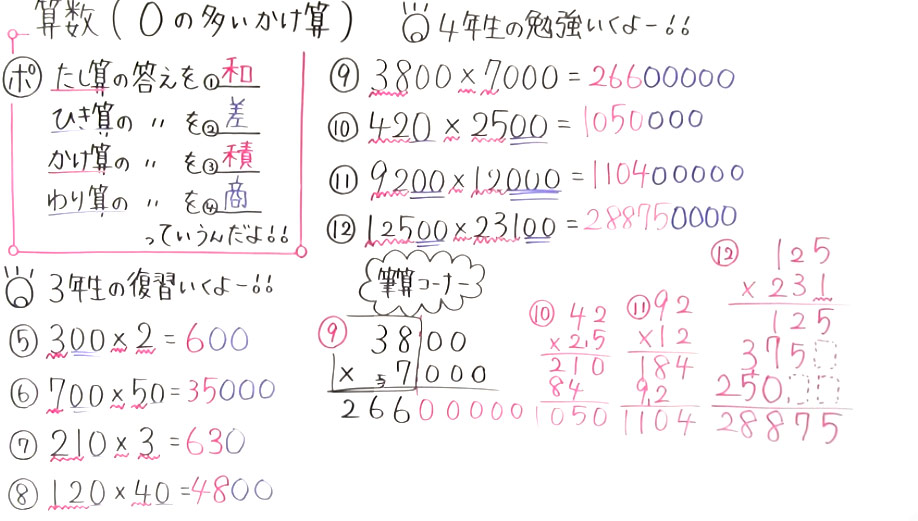 算数(0の多いかけ算)
ポ たし算の答えを①和
ひき算の 〃 を②差
かけ算の 〃 を③積
わり算の 〃 を④商
っていうんだよ!!
3年生の復習いくよー!!
⑤ 300×2=600
⑥ 700×50=35000
⑦ 210×3=630
⑧ 120×40=4800
4年生の勉強いくよー!!
⑨ 3800×7000=26600000
⑩ 420×2500=1050000
⑪ 9200×12000=110400000
⑫ 12500×23100=288750000
筆算コーナー
⑨ 3800
×57000
26600000
⑩ 42
×25
210
84
1050
⑪ 92
×12
184
92
1104
⑫ 125
×231
125
375
250
28875